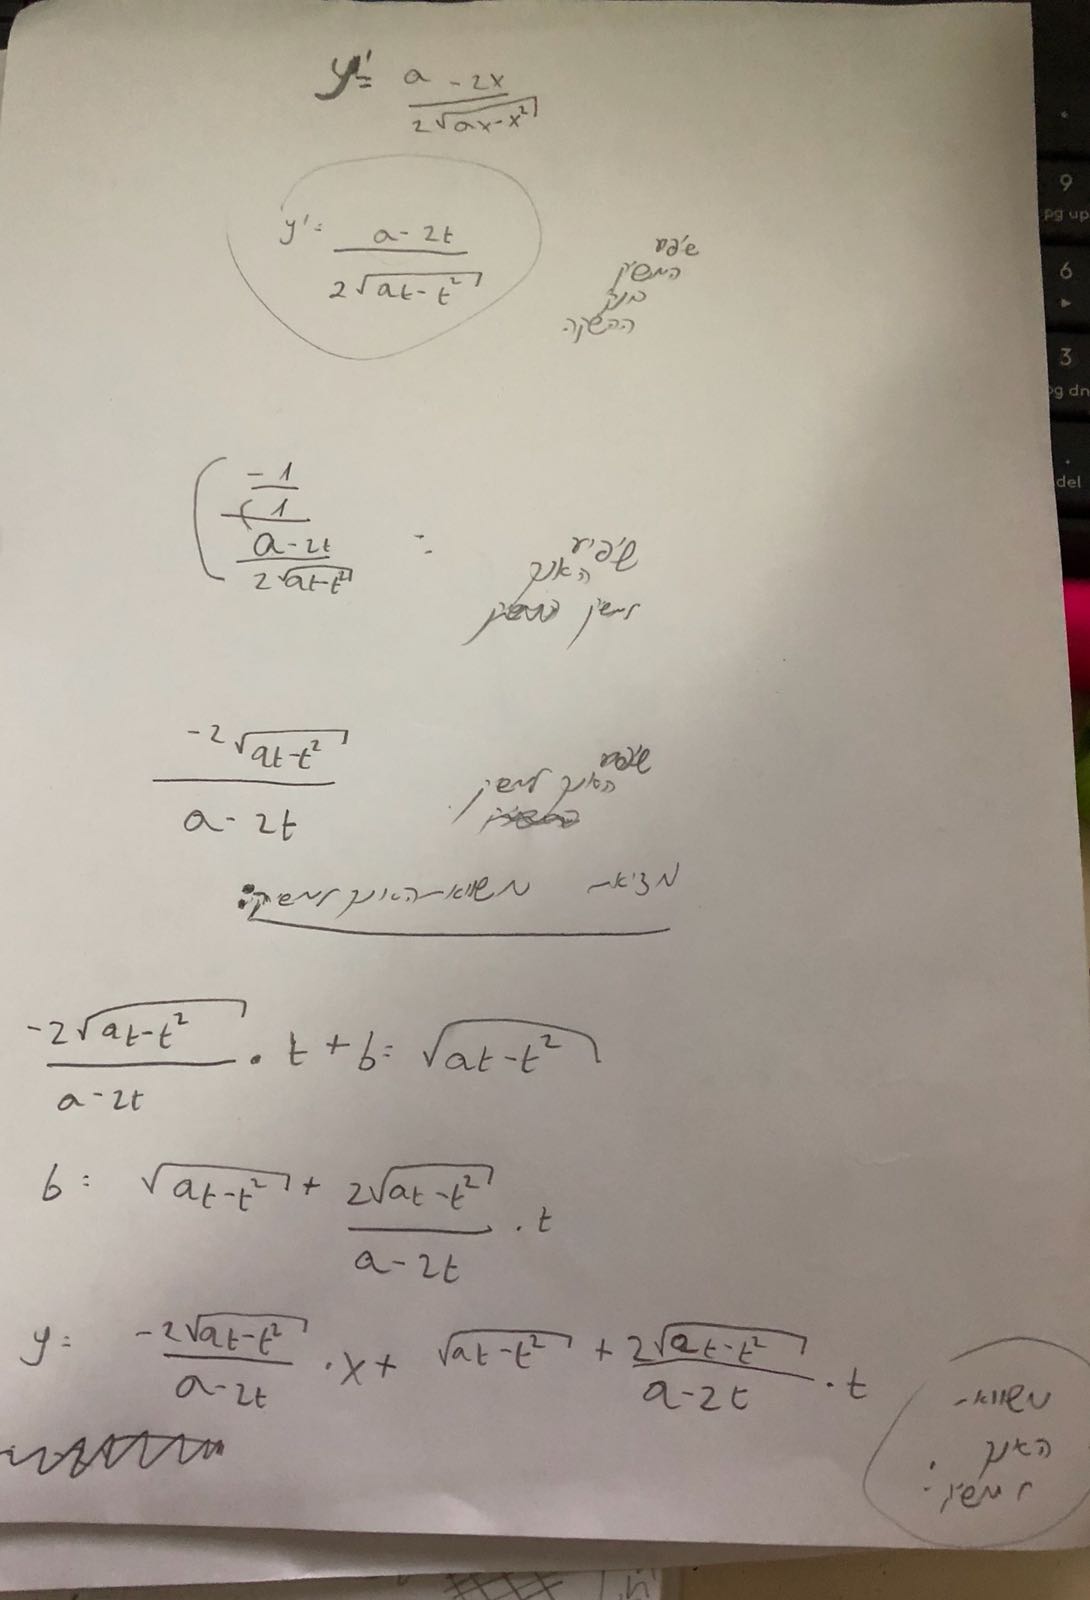 y' = a - 2x / 2√(ax-x²)
y' = a - 2t / 2√(at-t²)
שיפוע
המשיק
בנק'
ההשקה
-1 / (a-2t / 2√(at-t²)) =
שיפוע
האנך
למשיק
-2√(at-t²) / a - 2t
שיפוע
האנך למשיק
מציאת משוואת האנך למשיק:
-2√(at-t²) / a-2t · t + b = √(at-t²)
b = √(at-t²) + 2√(at-t²) / a-2t · t
y = -2√(at-t²) / a-2t · x + √(at-t²) + 2√(at-t²) / a-2t · t
משוואת
האנך
למשיק:
9
pg up
6
3
pg dn
del